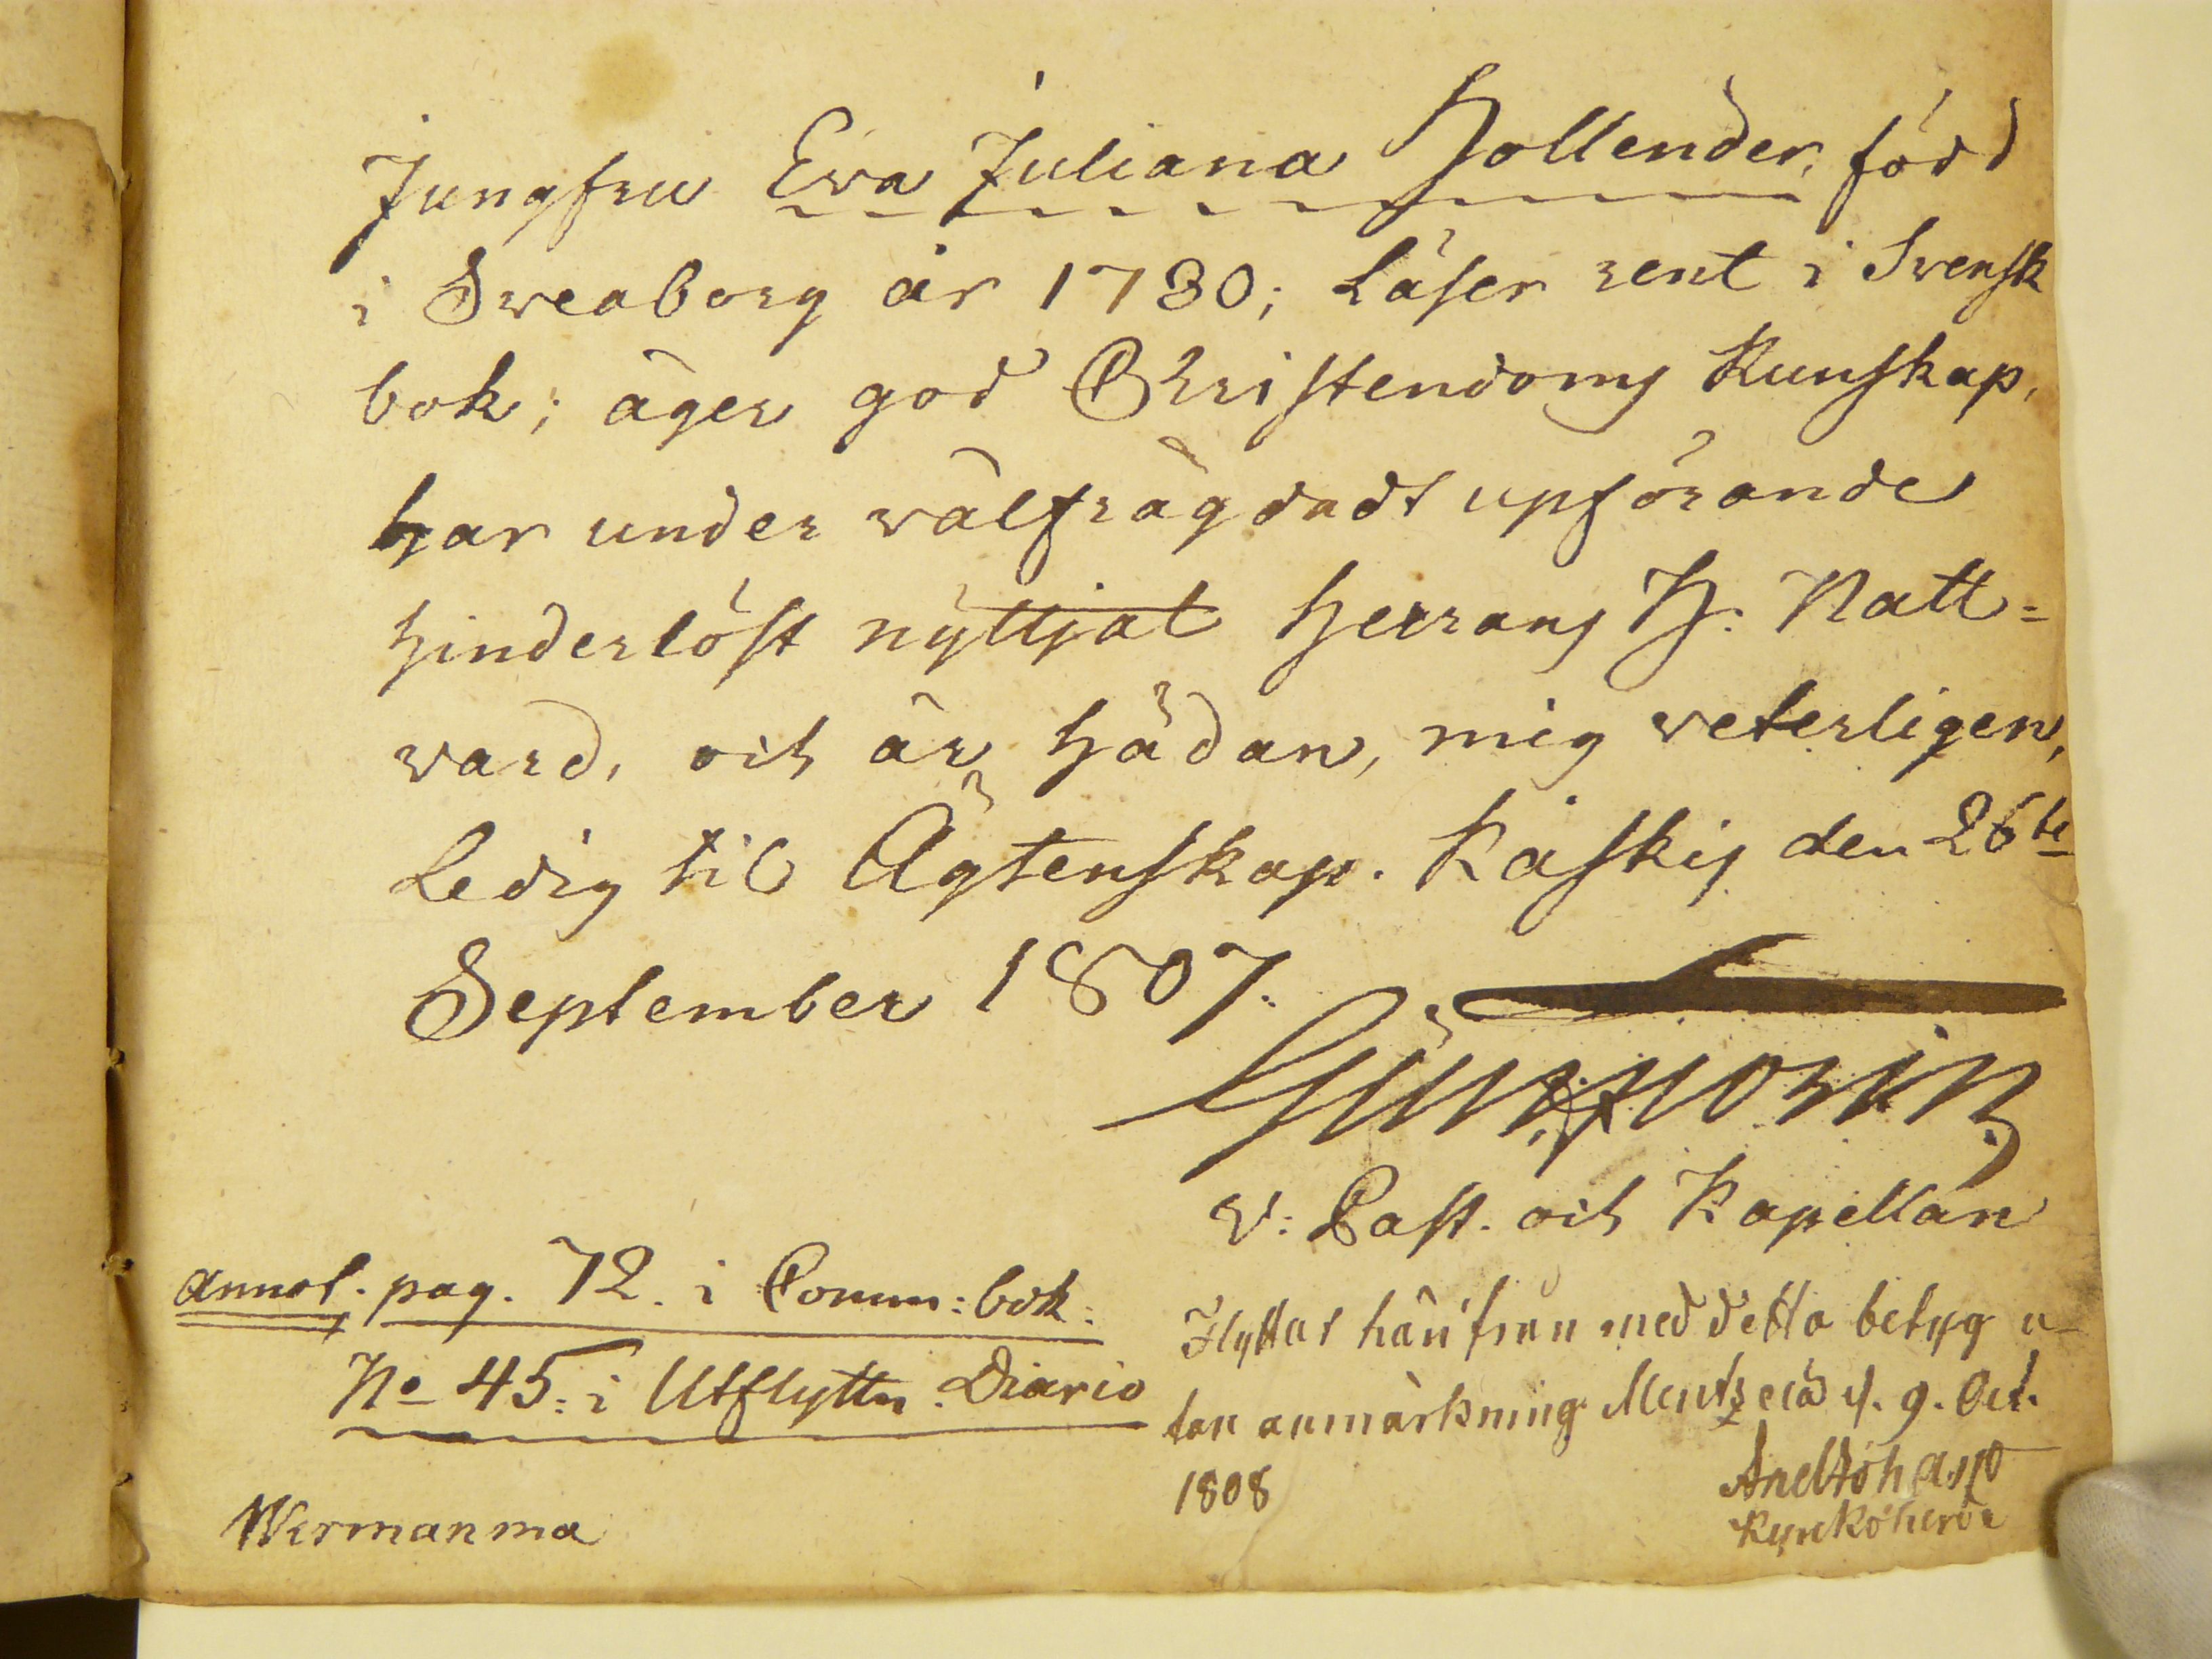 Jungfru Ewa Juliana Hollender, född
i Sweaborg år 1780; Läser rent i Svensk
bok; äger god Christendoms Kunskap,
har under välfrägdadt upförande
hinderlöst nyttjat Herrans H. Natt=
vard, och är hädan, mig veterligen,
Ledig til Ägtenskap. Kaskis den 26te
September 1807.
v: Past. och Kapellan
annot. pag. 72. i Comm: bok:
No 45: i Utflyttn. Diario
Flyttar härifrån med detta betyg u-
tan anmärkning d. 9. Oct.
1808
Kyrckoherde
Wirmanma